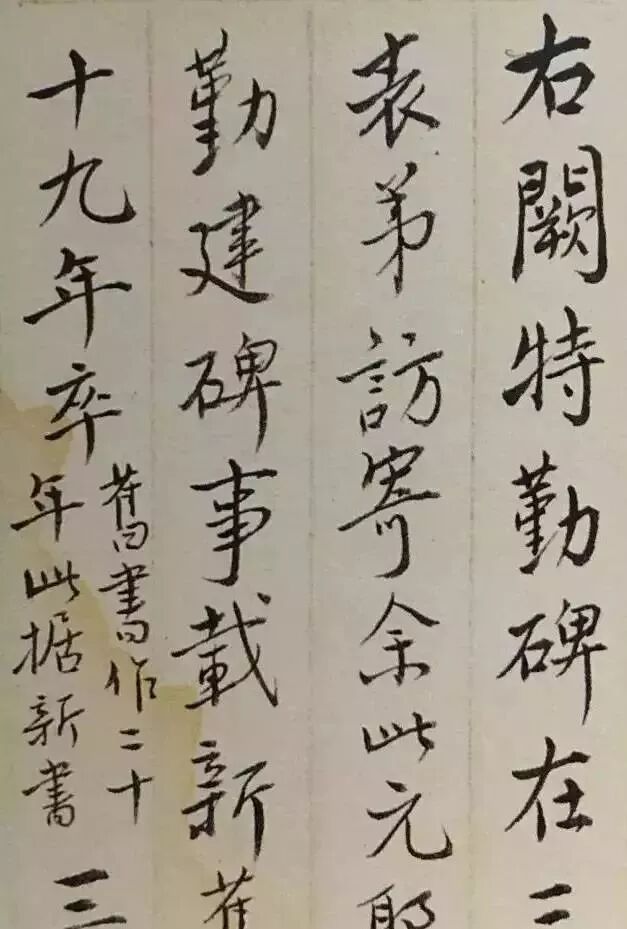 右闕特勤碑在二
表弟訪寄余此元
勤建碑事載新舊
十九年卒舊書作二十
年此据新書三